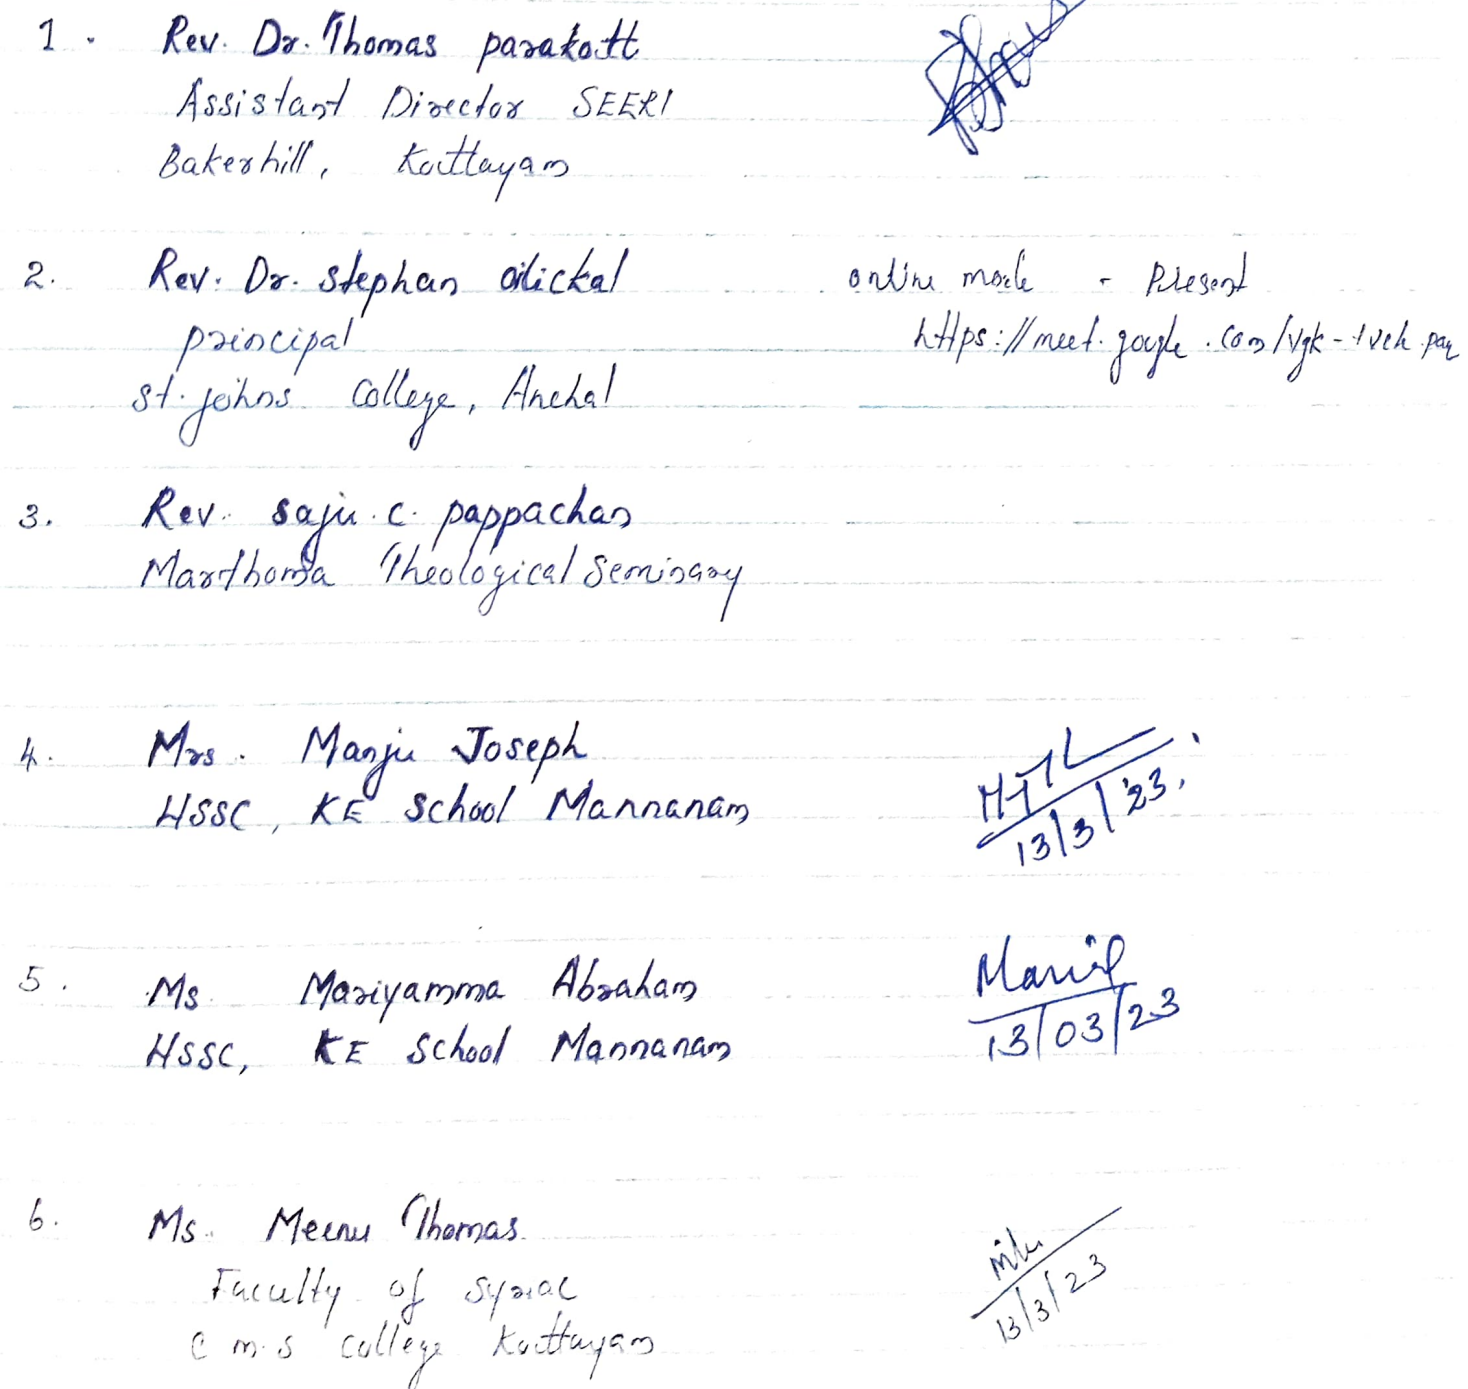 1. Rev. Dr. Thomas parakott
Assistant Director SEERI
Bakerhill, Kottayam
2. Rev. Dr. stephan
online mode - Present
principal
https://meet.google.com/vgk-
st. johns college, Anchal
3. Rev. saju. c. pappachan
Marthoma Theological Seminary
4. Mrs. Manju Joseph
HSSC, KE school Mannanam
13/3/'23.
5. Ms Mariyamma Abraham
HSSC, KE school Mannanam
13/03/23
6. Ms. Meenu Thomas.
Faculty of syriac
C m.s college Kottayam
13/3/23